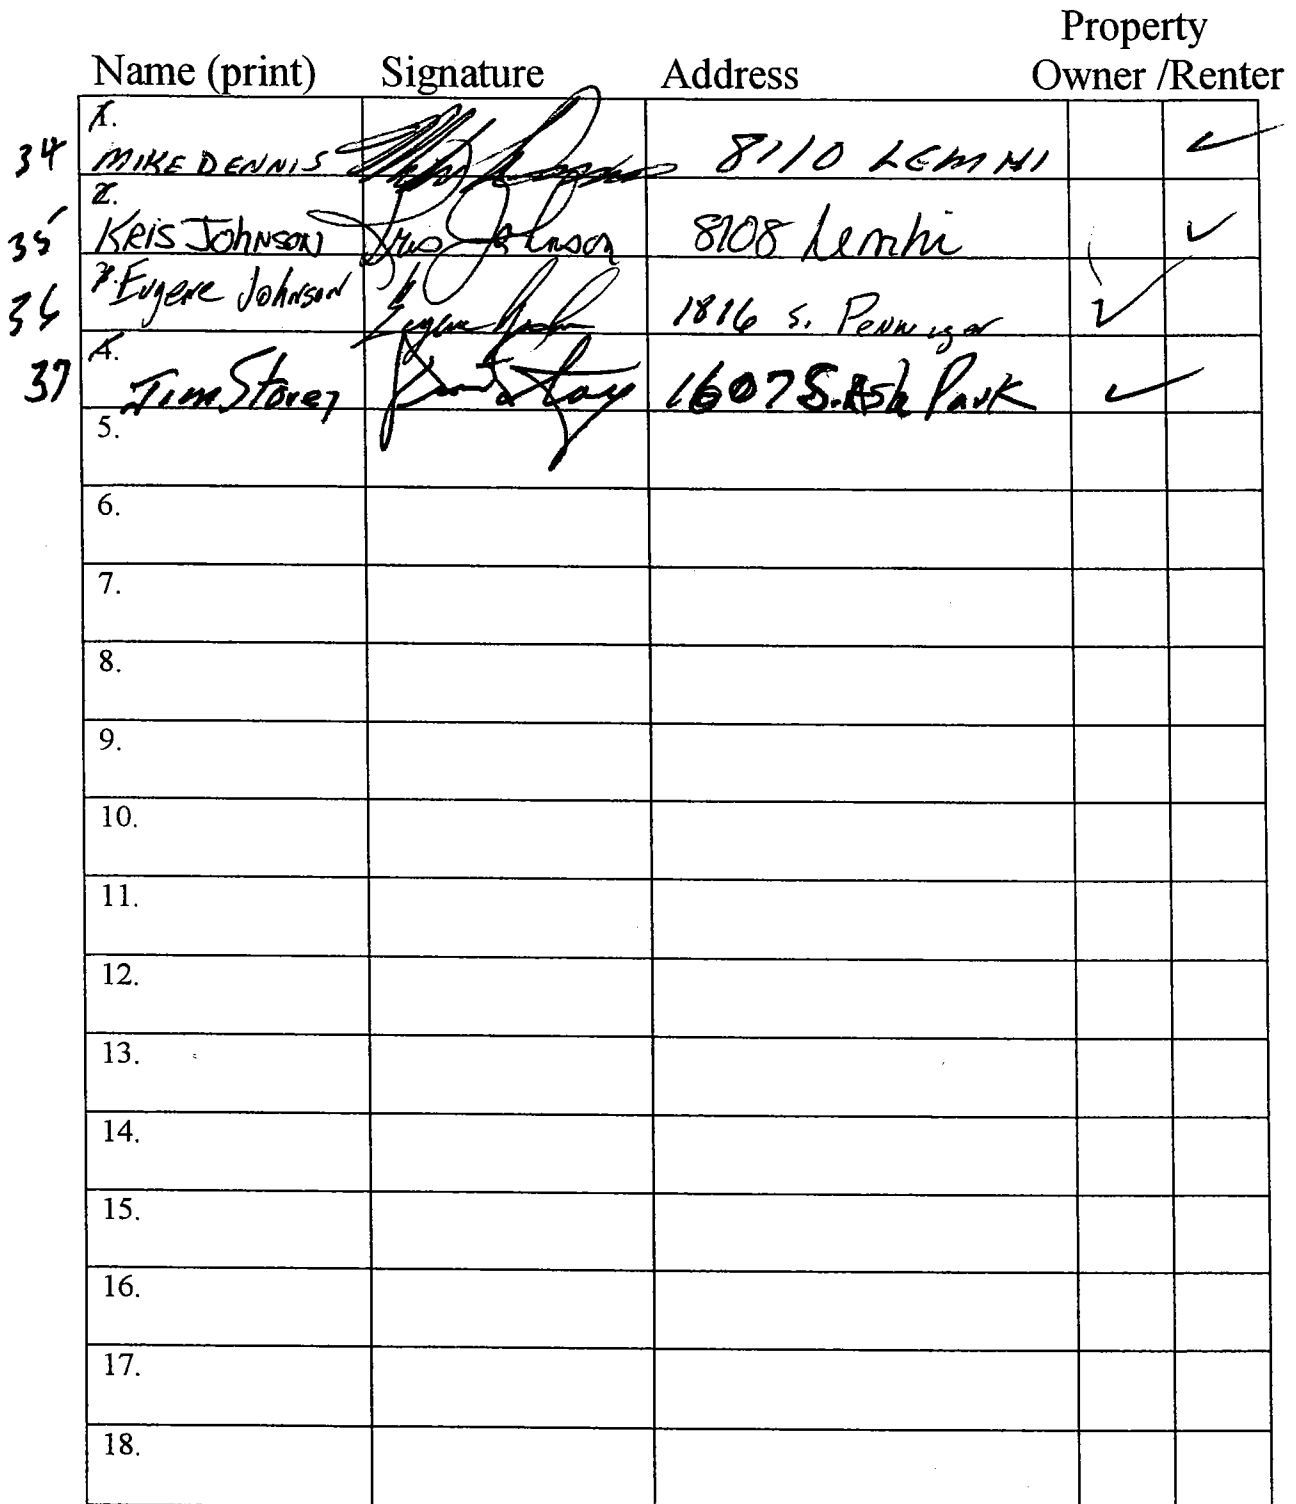 Property
Name (print) Signature Address Owner /Renter
1.
34 MIKE DENNIS 8110 LEMHI ✓
2.
35 KRIS JOHNSON Kris Johnson 8108 Lemhi ✓
3. Eugene Johnson
36 1816 S. Penninger ✓
4.
37 Jim Storey 1607 S. Ash Park ✓
5.
6.
7.
8.
9.
10.
11.
12.
13.
14.
15.
16.
17.
18.